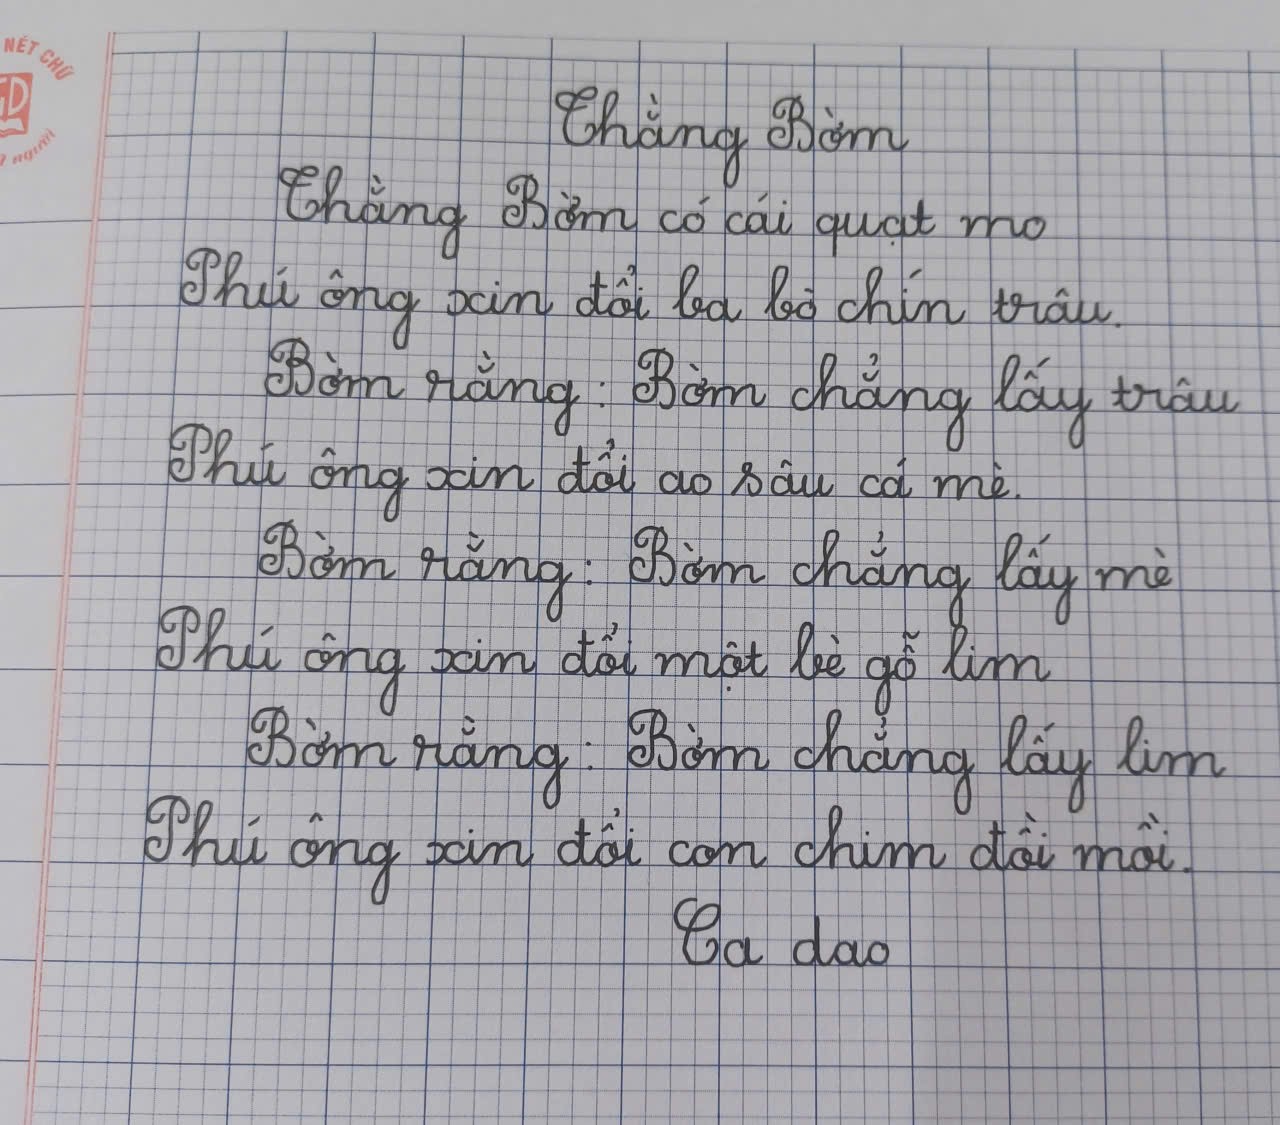 NÉT CHỮ
GD
người
Thằng Bờm
Thằng Bờm có cái quạt mo
Phú ông xin đổi ba bò chín trâu.
Bờm rằng: Bờm chẳng lấy trâu
Phú ông xin đổi ao sâu cá mè.
Bờm rằng: Bờm chẳng lấy mè
Phú ông xin đổi một bè gỗ lim
Bờm rằng: Bờm chẳng lấy lim
Phú ông xin đổi con chim đồi mồi.
Ca dao